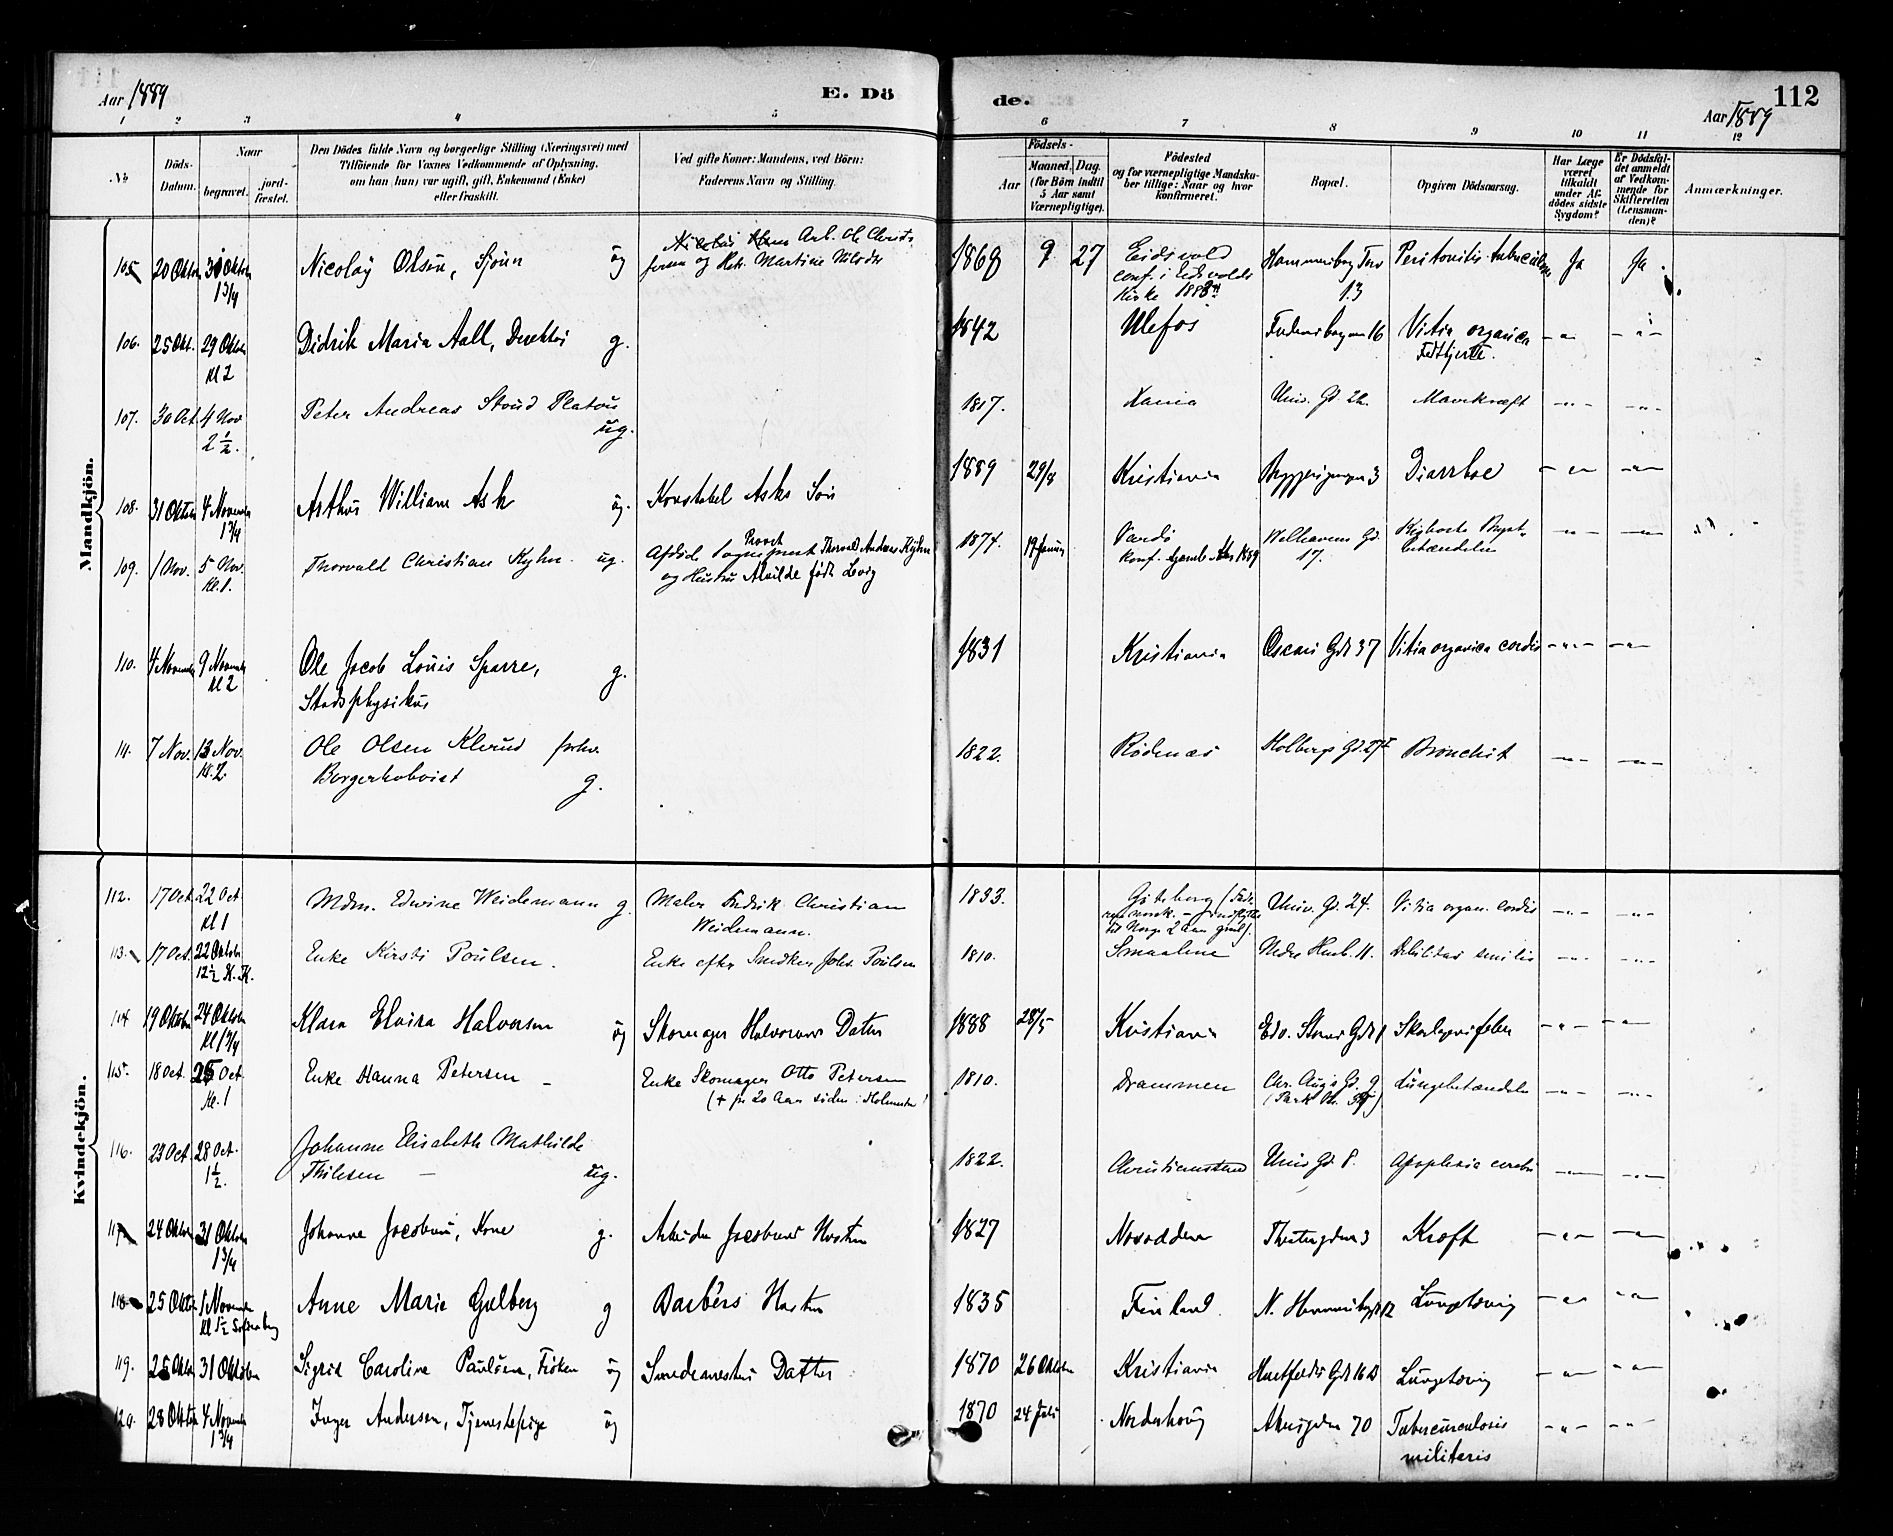 Aar 1889
E. Dö
de.
112
Aar 1889
1 2 3 4 5 6 7 8 9 10 11 12
No
Döds-Datum.
Naar
begravet.
jord-fæstet.
Den Dödes fulde Navn og borgerlige Stilling (Næringsvei) med
Tilföiende for Voxnes Vedkommende af Oplysning,
om han (hun) var ugift, gift, Enkemand (Enke)
eller fraskilt.
Ved gifte Koner: Mandens, ved Börn:
Faderens Navn og Stilling.
Födsels-
Aar
Maaned. Dag.
(for Börn indtil
5 Aar samt
Værnepligtige).
Födested
og for værnepligtige Mandska-
ber tillige: Naar og hvor
konfirmeret.
Bopæl.
Opgiven Dödsaarsag.
Har Læge
været
tilkaldt
under Af-
dödes sidste
Sygdom?
Er Dödsfal-
det anmeldt
af Vedkom-
mende for
Skifteretten
(Lensman-
den)?
Anmærkninger.
Mandkjön.
105 20 Oktbr 31 Oktbr 1 3/4 Nicolay Olsen, ug Arb. Ole Christo-
fersen og Martine Nilsdr 1868 9 27 Eidsvold
conf. i Eidsvolds
Kirke Hammersborg Torv
13 Peritonitis tuberculosa Ja Ja
106. 25 Okt. 29 Oktbr Kl 2 Didrik Maria Aall, Direktör g. 1842 Ulefos 16 Vitia organica
Fedthjerte. -"- -"-
107. 30 Oct. 4 Nov 2 1/2. Peter Andreas Stoud Platou
ug. 1817. Xania Univ. Gd. 22. Mavekræft -"- -"-
108. 31 Oktbr 4 November 1 3/4 Arthur William Ask ug. Konstabel Asks Sön 1889 29/8 Kristiania 3 Diarrhoe -"- -"-
109. 1 Nov. 5 Nov. Kl. 1. Thorvald Christian Kyhn. ug. Afdöd Sogneprest Provst Thorvald Andreas Kyhn
og Hustru Alvilde född Lovig 1874. 19 Januar Vardö
Konf. 1889 Welhavens Gd.
17. -"- -"-
110. 4 November 9 November Kl 2 Ole Jacob Louis Sparre,
Stadsphysikus g. 1831 Kristiania Oscars Gd 37 Vitia organica cordis -"- -"-
111. 7 Nov. 13 Nov. Kl. 2. Ole Olsen Klerud forhv.
Borgerhobvist g. 1822. Rödenæs Holbergs Gd. 27 I Bronchit -"- -"-
Kvindekjön.
112. 17 Oct. 22 Oct Kl 1 Mdm. Edwine Weidemann g. Maler Fredrik Christian
Weidemann. 1833. Göteborg
norsk. -
til Norge 2 Aar gml). Univ. Gd. 24. Vitia organ. cordis -"- -"-
113. 17 Oct. 22 Oktbr 12 1/2 K. K. Enke Kirsti Poulsen. Enke efter Snedker Johs. Poulsen 1810. Smaalene Nedre 11. Debilitas senilis -"- -"-
114 19 Oktober 24 Oktober Kl 1 3/4 Klara Elvira Halvorsen ug Skomager Halvorsens Datter 1888 28/5 Kristiania Edv. Storms Gd 1 Skarlagensfeber -"- -"-
115. 18 Oct. 25 Oct. Kl. 1 Enke Hanna Petersen - Enke Skomager Otto Petersen
(+ for 20 Aar siden i Holmestr.) 1810. Drammen Chr. Augs Gd. 9. Lungebetændelse -"- -"-
116. 23 Oct. 28 Oct. 1 1/2. Johanne Elisabeth Mathilde
Thilesen - ug. 1822. Christianssand Univ Gd 8. Apoplexia cerebri -"- -"-
117 24 Oktbr 31 Oktober 1 3/4 Johanne Jacobsen, Kone g. Arbeider Jacobsens Hustru 1827 Nesodden 3 Kræft -"- -"-
118 25 Oktbr 1 November Kl 1 1/2 Anne Marie Gulberg g Barbérs Hustru 1835 Finland. N. 12 Lungetæring -"- -"-
119. 25 Oktbr 31 Oktober Sigrid Caroline Paulsen, Fröken ug Datter 1870 26 Oktober Kristiania Huitfeldts Gd 16 B Lungetæring -"- -"-
120. 28 Oktbr 4 November 1 3/4 Inger Andersen, Tjenestepige ug 1870 24 Juli Norderhov Akersgaden 70 Tuberculosis
miliaris -"- -"-